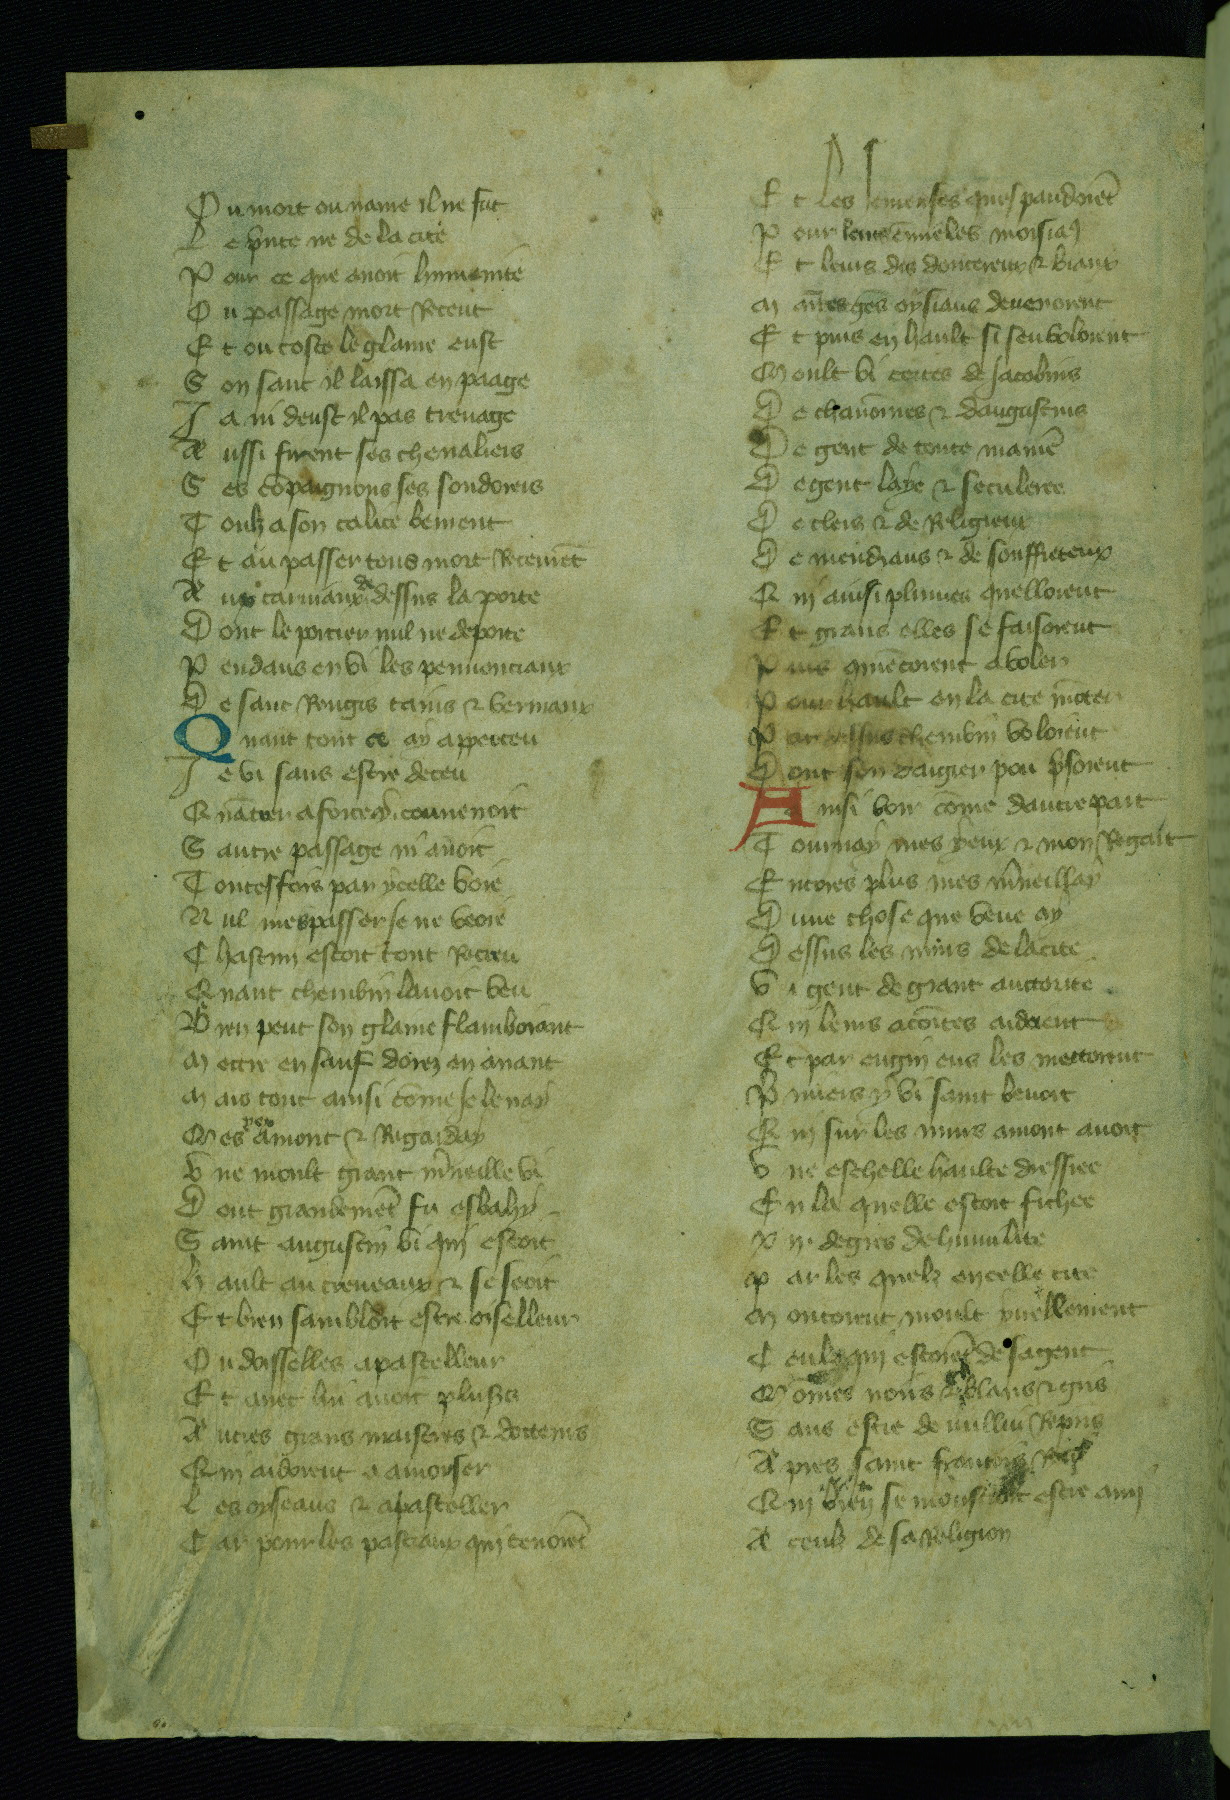 Ou mort ou name il ne fut
Le prince ne de la cite
Pour ce que auoit humanite
Ou passage mort Receut
Et ou coste le glaiue eust
Son sanc il laissa en paage
Ia ni deust il pas treuage
Aussi firent ses cheualiers
Ses cōpaignons ses soudoiers
Toulz a son calice beurent
Et au passer tous mort Receurēt
Aux carniaux de dessus la porte
Dont le portier nul ne deporte
Pendans en vi les pennonciaux
De sanc Rougis tains & vermaux
Quant tout ce ay apperceu
Ie vi sans estre deceu
Quātrer a force y couuenoit
Sautre passage ni auoit
Toutesfois par ycelle voie
Nul mes passer ie ne veoie
Chascun estoit tout Recreu
Quant cherubin lauoit veu
Bien peut son glaiue flamboiant
Mettre en sauf dorez en auant
Mais tout ainsi cōme ie leuay
Mes yex amont & Rigarday
Vne moult grant m̄ueille vi
Dont grandemēt fu esbahy
Saint augustin vi qui estoit
Hault au creneaux & se seoit
Et bien sambloit estre oiselleur
Ou doisselles apastelleur
Et auec lui auoit plus's
Autres grans maistres & docteurs
Qui aidoient a amorser
Les oyseaus & apasteller
Car pour les pastiaux qui tenoiēt
Et les semenses ques pandoiēt
Pour leurs ēmielés morsiaus
Et leurs dis doucereux & biaux
Maītes gēs oysiaus deuenoient
Et puis en hault si senvoloient
Moult vi certes de Jacobins
De chanōines & daugustins
De gent de toute manie᷑
De gent laye & seculeree
De clers & de Religieux
De mendians & de souffreteux
Qui ainsi plumes quelloient
Et grans elles se faisoient
Puis qmēcoient a voler
Pour hault en la cite mōter
Par dessus cherubin voloient
Dont son daigier pou p̄soient
Ainsi vour cōme dautre part
Tournay mes yeux & mon Regart
Encores plus mes m̄ueillay
Dune chose que veue ay
Dessus les murs de la cite
Vi gent de grant auctorite
Qui leurs acōtes aidoient
Et par engin eus les mettoient
P̄miers y vi saint benoit
Qui sur les murs amont auoit
Vne eschelle haulte dressiee
En la quelle estoit fichee
xii. degres de humilite
Par les quelz en celle cite
Montoient moult ynellement
Ceulz qui estoiēt de sa gent
Moīnes noirs & blans & gris
Sans estre de nullui Repris
Apres saint francois
Qui bien se monstroit estre amy
A ceulz de sa Religion